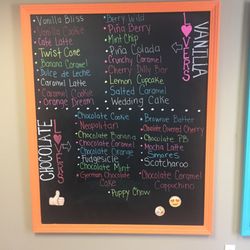 Vanilla Bliss
Vanilla Cookie
Cafe Latte
Twist Cone
Banana Caramel
Dulce de Leche
Caramel Latte
Caramel Cookie
Orange Dream
Berry Wild
Piña Berry
Mint Chip
Piña Colada
Crunchy Caramel
Cherry Dilly Bar
Lemon Cupcake
Salted Caramel
Wedding Cake
VANILLA
LOVERS
CHOCOLATE
LOVERS
Chocolate Cookie
Neopolitan
Chocolate Banana
Chocolate Caramel
Chocolate Orange
Fudgesicle
Chocolate Mint
German Chocolate
Cake
Puppy Chow
Brownie Batter
Chocolate Covered Cherry
Chocolate PB
Mocha Latte
Smores
Scotcharoo
Chocolate Caramel
Cappuccino